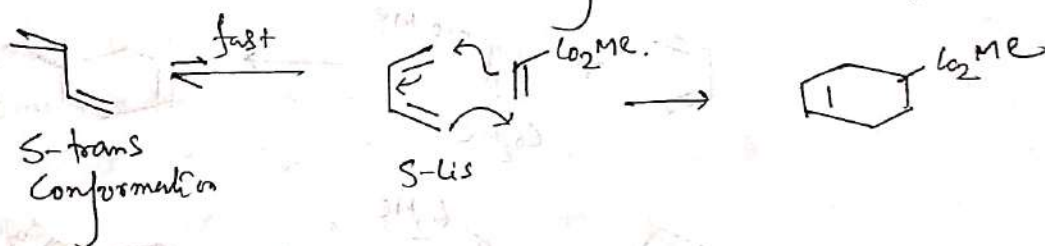 fast
CO2Me.
CO2Me
S-trans
Conformation
S-Cis